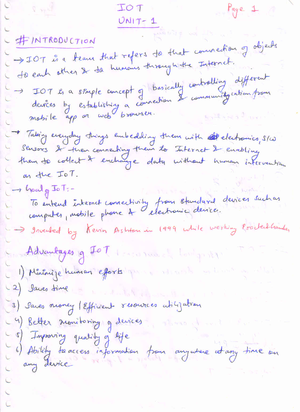 IOT
Page 1
UNIT-1
# INTRODUCTION
→ IOT is a team that refers to that connection of objects
to each other & to humans through the Internet.
→ IOT is a simple concept of basically controlling different
devices by establishing a connection & communication from
mobile app or web browser.
→ Taking everyday things embedding them with electronics, S/W
sensors & then connecting them to Internet & enabling
them to collect & exchange data without human intervention
as the IOT.
→ Goal of IOT:-
To extend internet connectivity from standard devices such as
computer, mobile phone & electronic device.
→ Invented by Kevin Ashton in 1999 while working
Advantages of IOT
1) Minimize human efforts
2) Saves time
3) Saves money / Efficient resources utilization
4) Better monitoring of devices
5) Improving quality of life
6) Ability to access information from anywhere at any time on
any device.